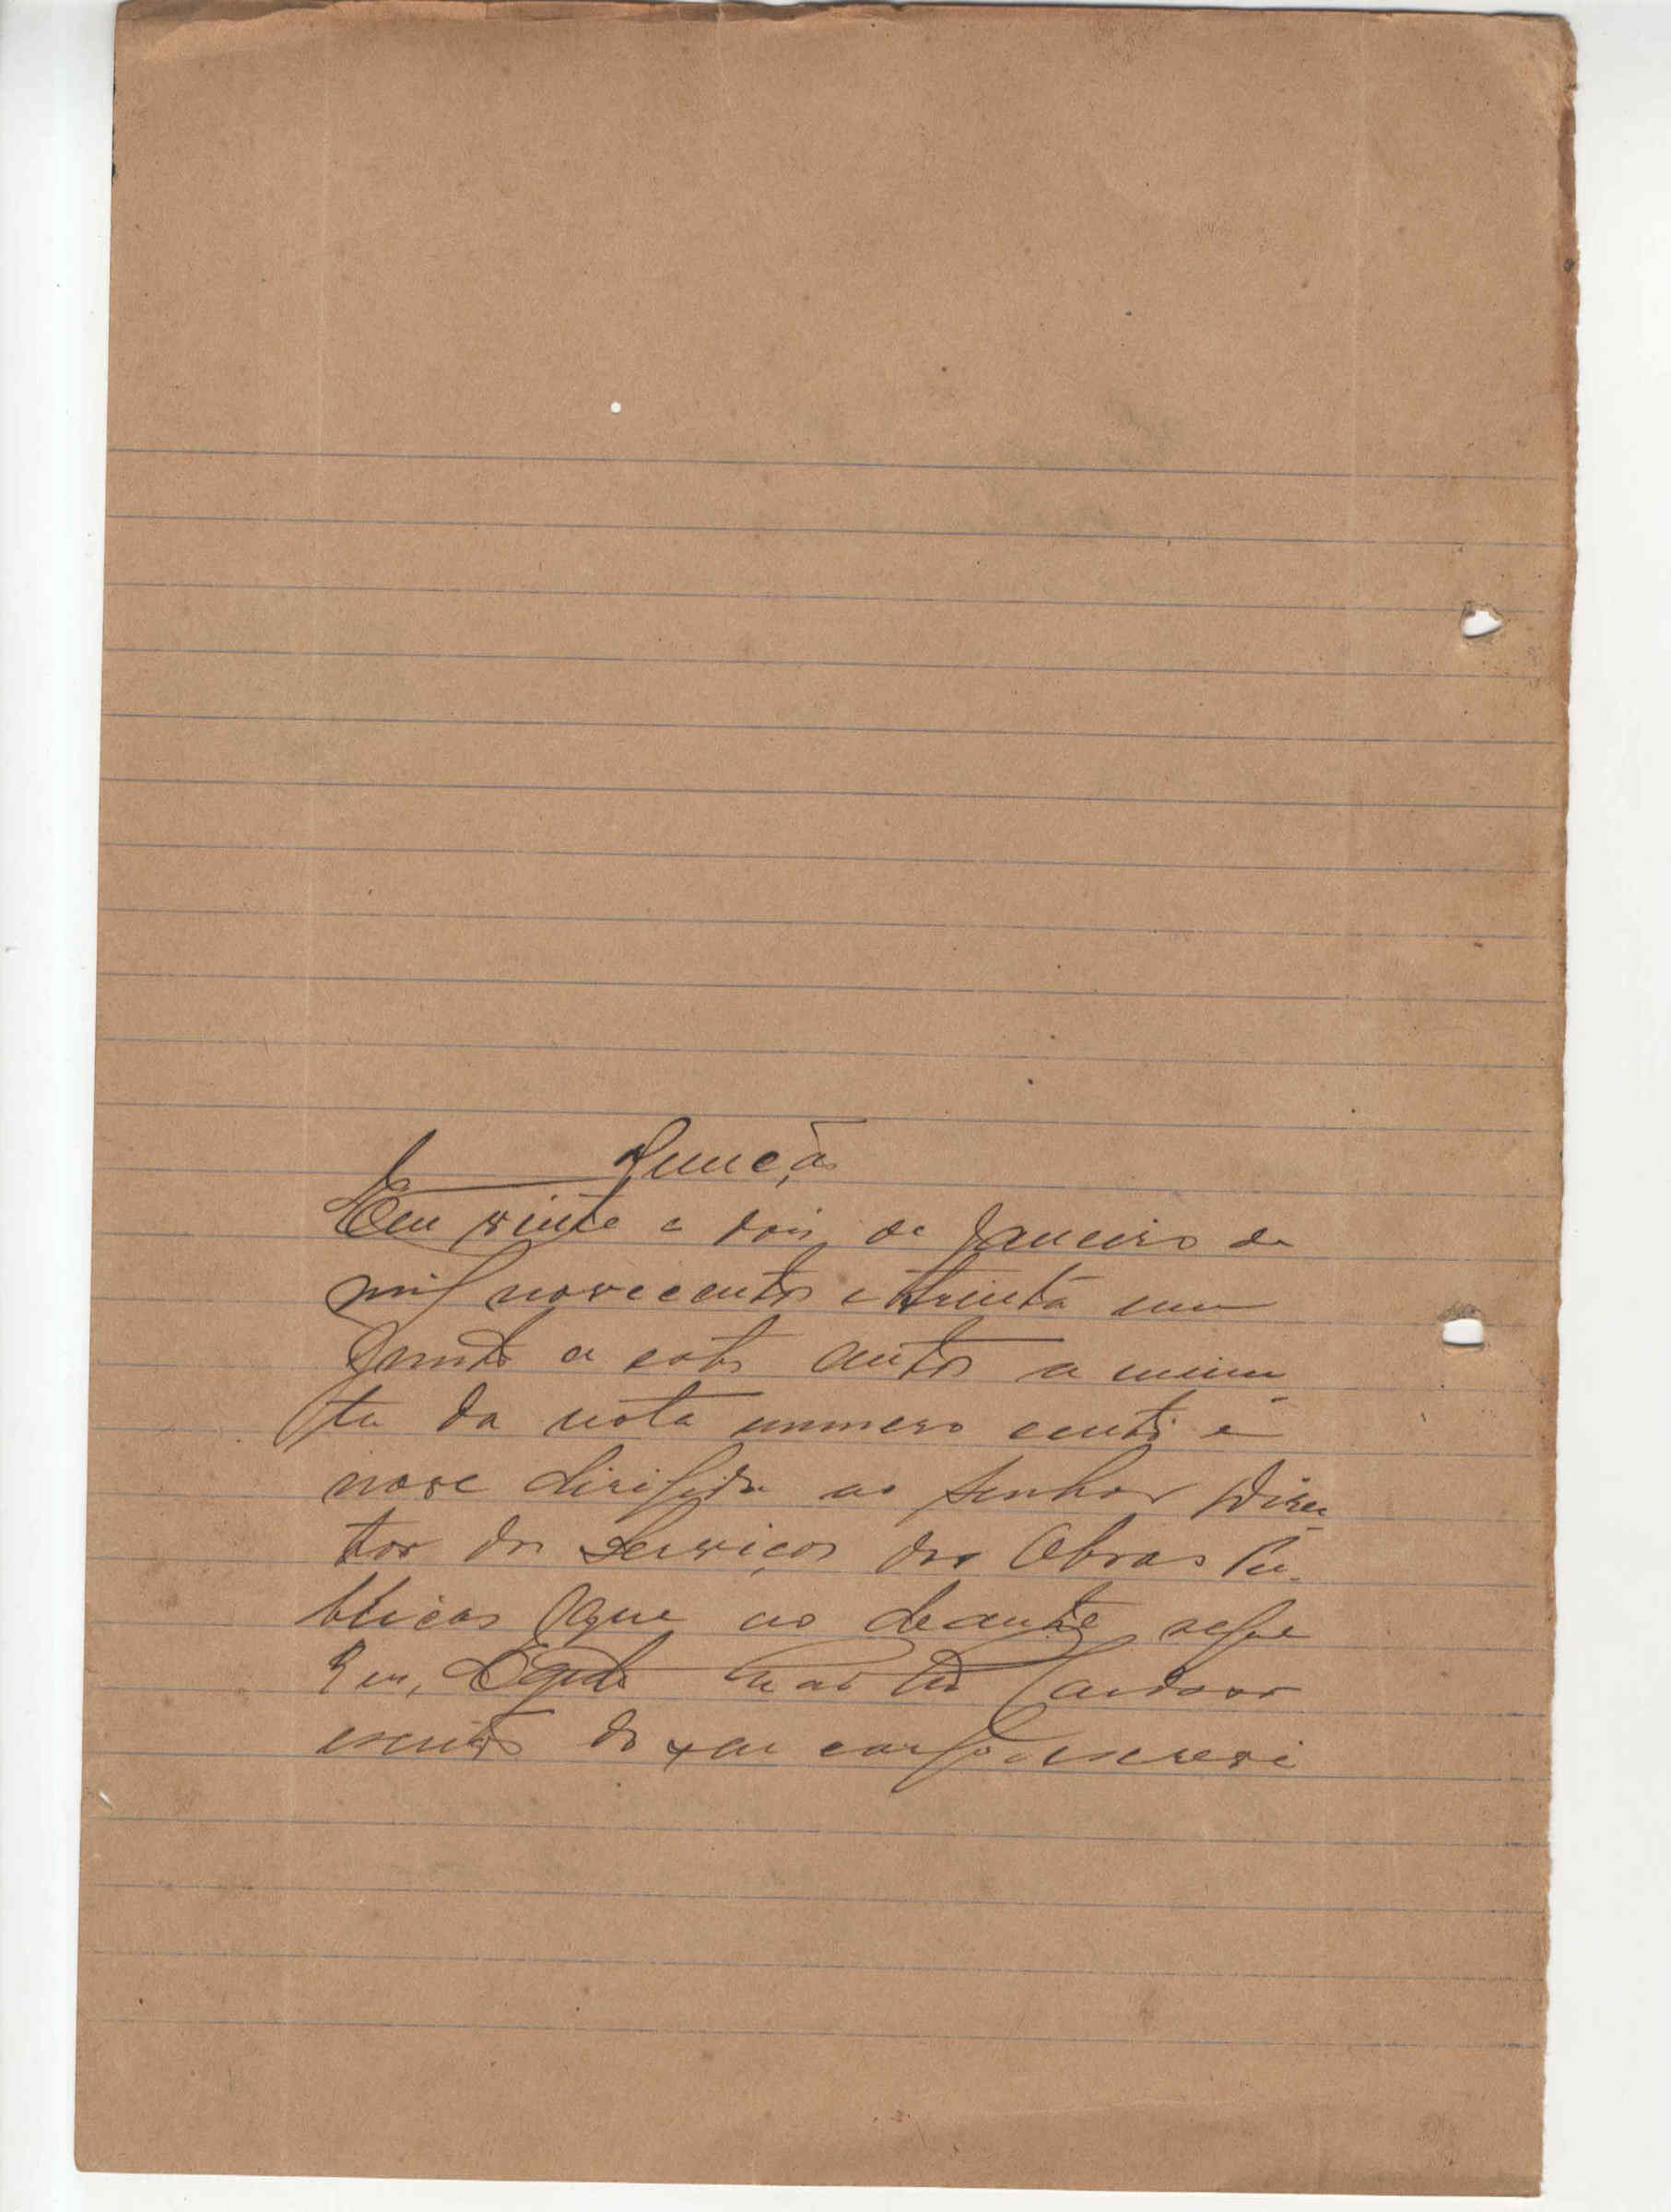 Juncção
Em vinte e dois de Janeiro de
mil novecentos e trinta um
Junto a estes autos a minu
ta da nota numero cento e
nove dirigida ao Senhor Direc
tor dos Serviços das Obras Pu-
blicas que ao deante segue
Eu, Cardoso
escrivão do seu cargo o escrevi